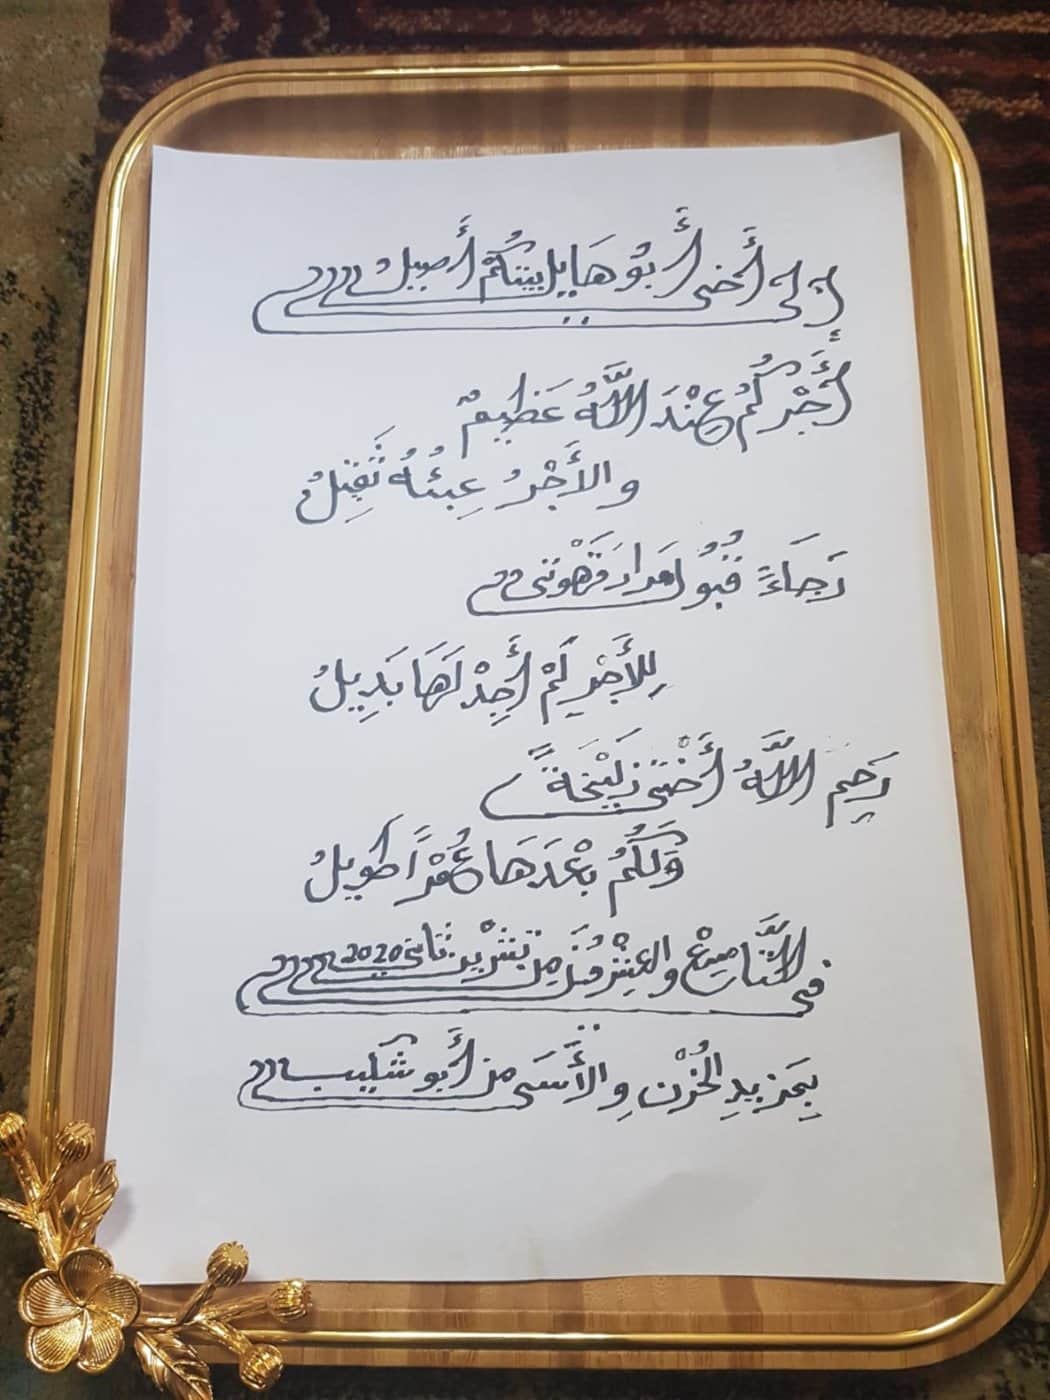 إلى أخي أبو هايل بيتكم أصيل
أَجْرُكُمُ عِنْدَ اللَّهُ عَظِيمٌ
والأَجْرُ عِبئُهُ ثَقِيلُ
رَجَاءً قُبُول مرار قَهْوتي
لِلأَجْرِ لَمْ أَجِدْ لَهَا بَدِيلُ
رَحِمِ اللَّهُ أَخْتي زَلَيْخَةً
وَلَكُمُ بعْدَهَا عُمْراً طويلُ
في التَّاسِعْ والعِشْرُونَ مِنْ تِشْرِين ثاني 2020
بِمَزيدِ الحُزْنِ والأَسَى من أَبو شكيب